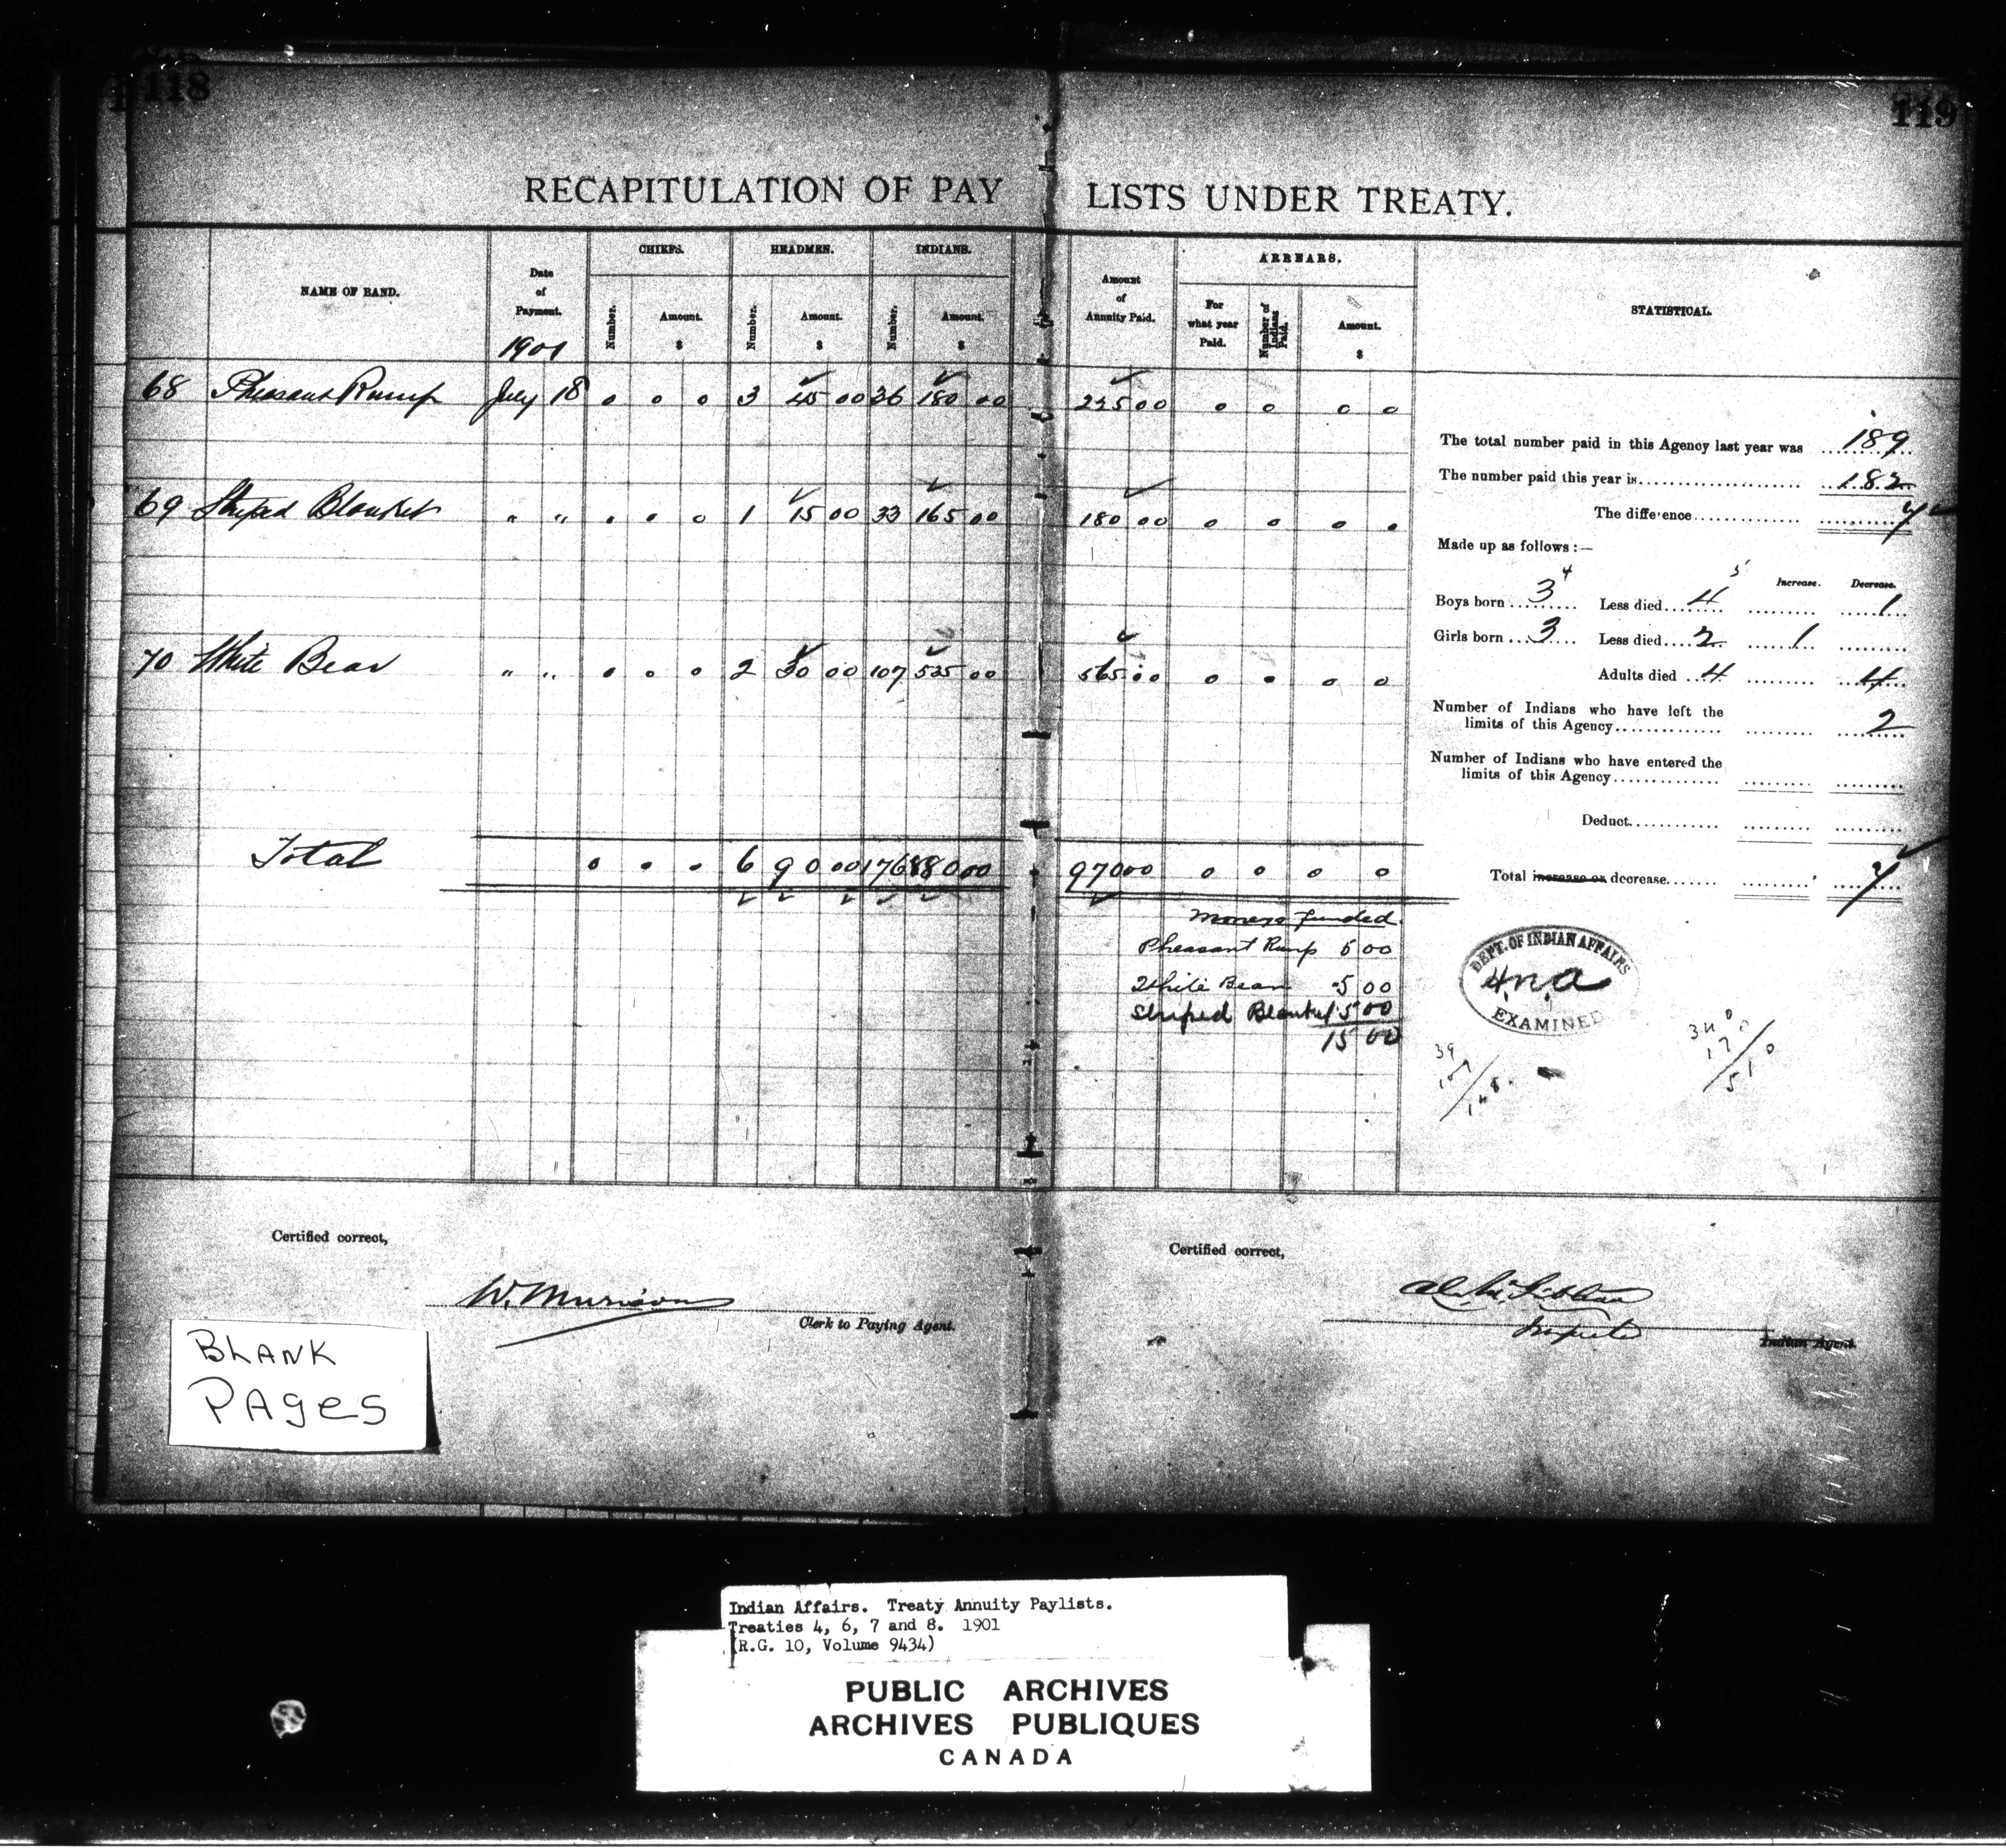 118
119
RECAPITULATION OF PAY LISTS UNDER TREATY.
NAME OF BAND.
Date of Payment.
1901
CHIEFS.
Number.
Amount.
$
HEADMEN.
Number.
Amount.
$
INDIANS.
Number.
Amount.
$
Amount of Annuity Paid.
ARREARS.
For what year Paid.
Number of Indians Paid.
Amount.
$
STATISTICAL.
68 Pheasant Rump July 18 0 0 0 3 45 00 36 180 00 225 00 0 0 0 0
69 Striped Blanket " " 0 0 0 1 15 00 33 165 00 180 00 0 0 0 0
70 White Bear " " 0 0 0 2 30 00 107 535 00 565 00 0 0 0 0
Total 0 0 0 6 90 00 176 880 00 970 00 0 0 0 0
Moneys funded.
Pheasant Rump 5 00
White Bear 5 00
Striped Blanket 5 00
15 00
The total number paid in this Agency last year was 189
The number paid this year is 182
The difference 7
Made up as follows:—
Increase. Decrease.
Boys born 3 4 Less died 4 5 1
Girls born 3 Less died 2 1
Adults died 4 4
Number of Indians who have left the
limits of this Agency 2
Number of Indians who have entered the
limits of this Agency
Deduct
Total increase or decrease 7
DEPT. OF INDIAN AFFAIRS
EXAMINED
39
109
148
340
170
510
Certified correct,
W. Murison
Clerk to Paying Agent.
Certified correct,
Indian Agent.
BLANK
PAges
Indian Affairs. Treaty Annuity Paylists.
Treaties 4, 6, 7 and 8. 1901
(R.G. 10, Volume 9434)
PUBLIC ARCHIVES
ARCHIVES PUBLIQUES
CANADA